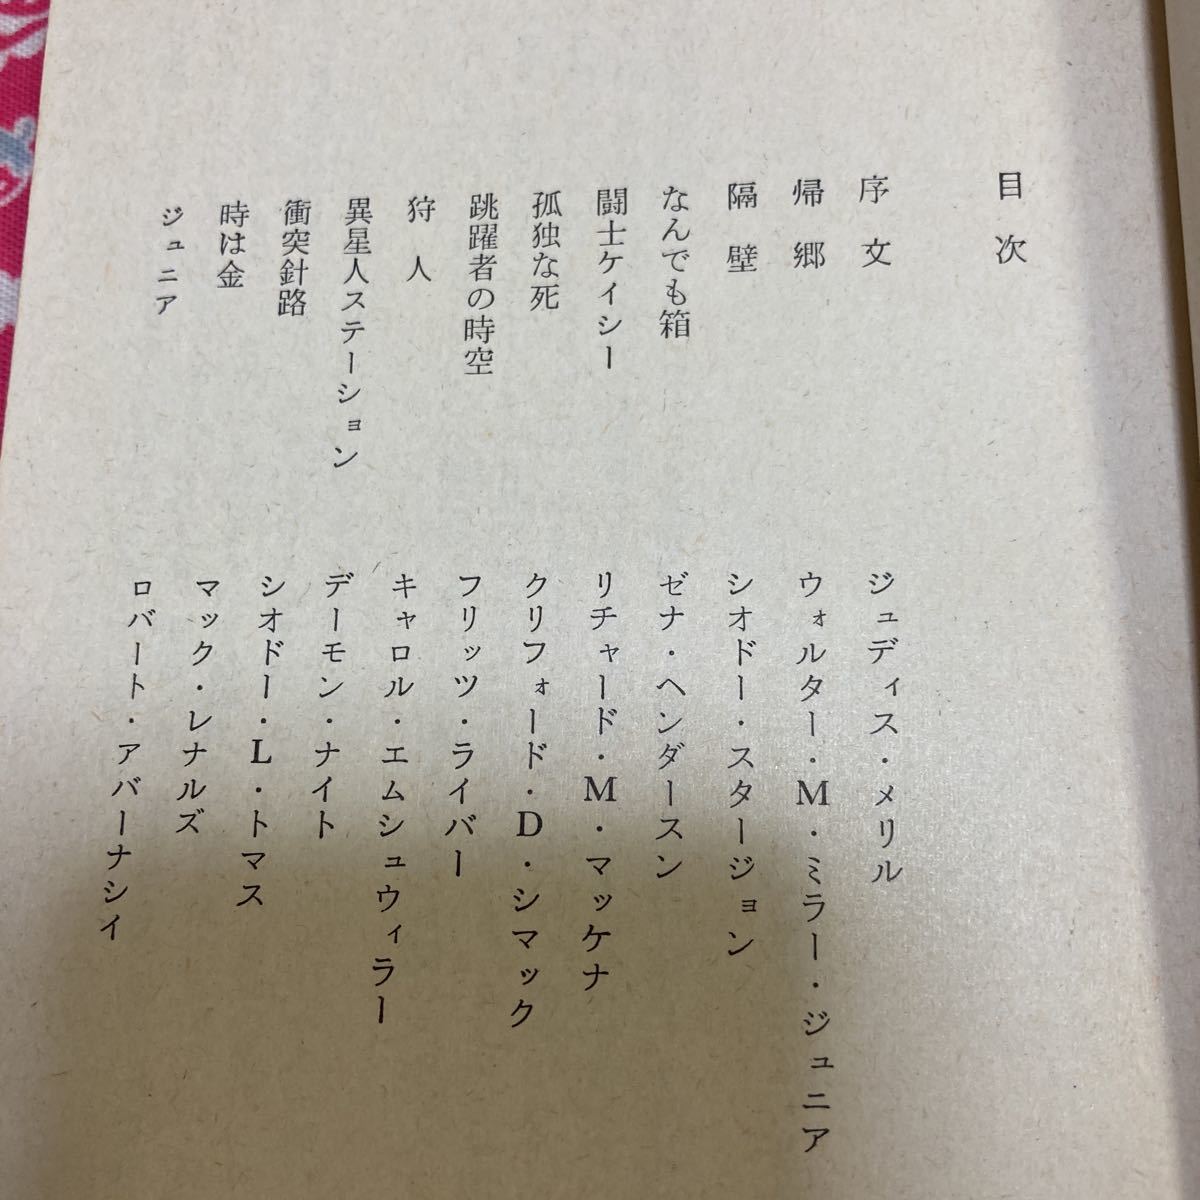 目次
序文 ジュディス・メリル
帰郷 ウォルター・M・ミラー・ジュニア
隔壁 シオドー・スタージョン
なんでも箱 ゼナ・ヘンダースン
闘士ケイシー リチャード・M・マッケナ
孤独な死 クリフォード・D・シマック
跳躍者の時空 フリッツ・ライバー
狩人 キャロル・エムシュウィラー
異星人ステーション デーモン・ナイト
衝突針路 シオドー・L・トマス
時は金 マック・レナルズ
ジュニア ロバート・アバーナシイ